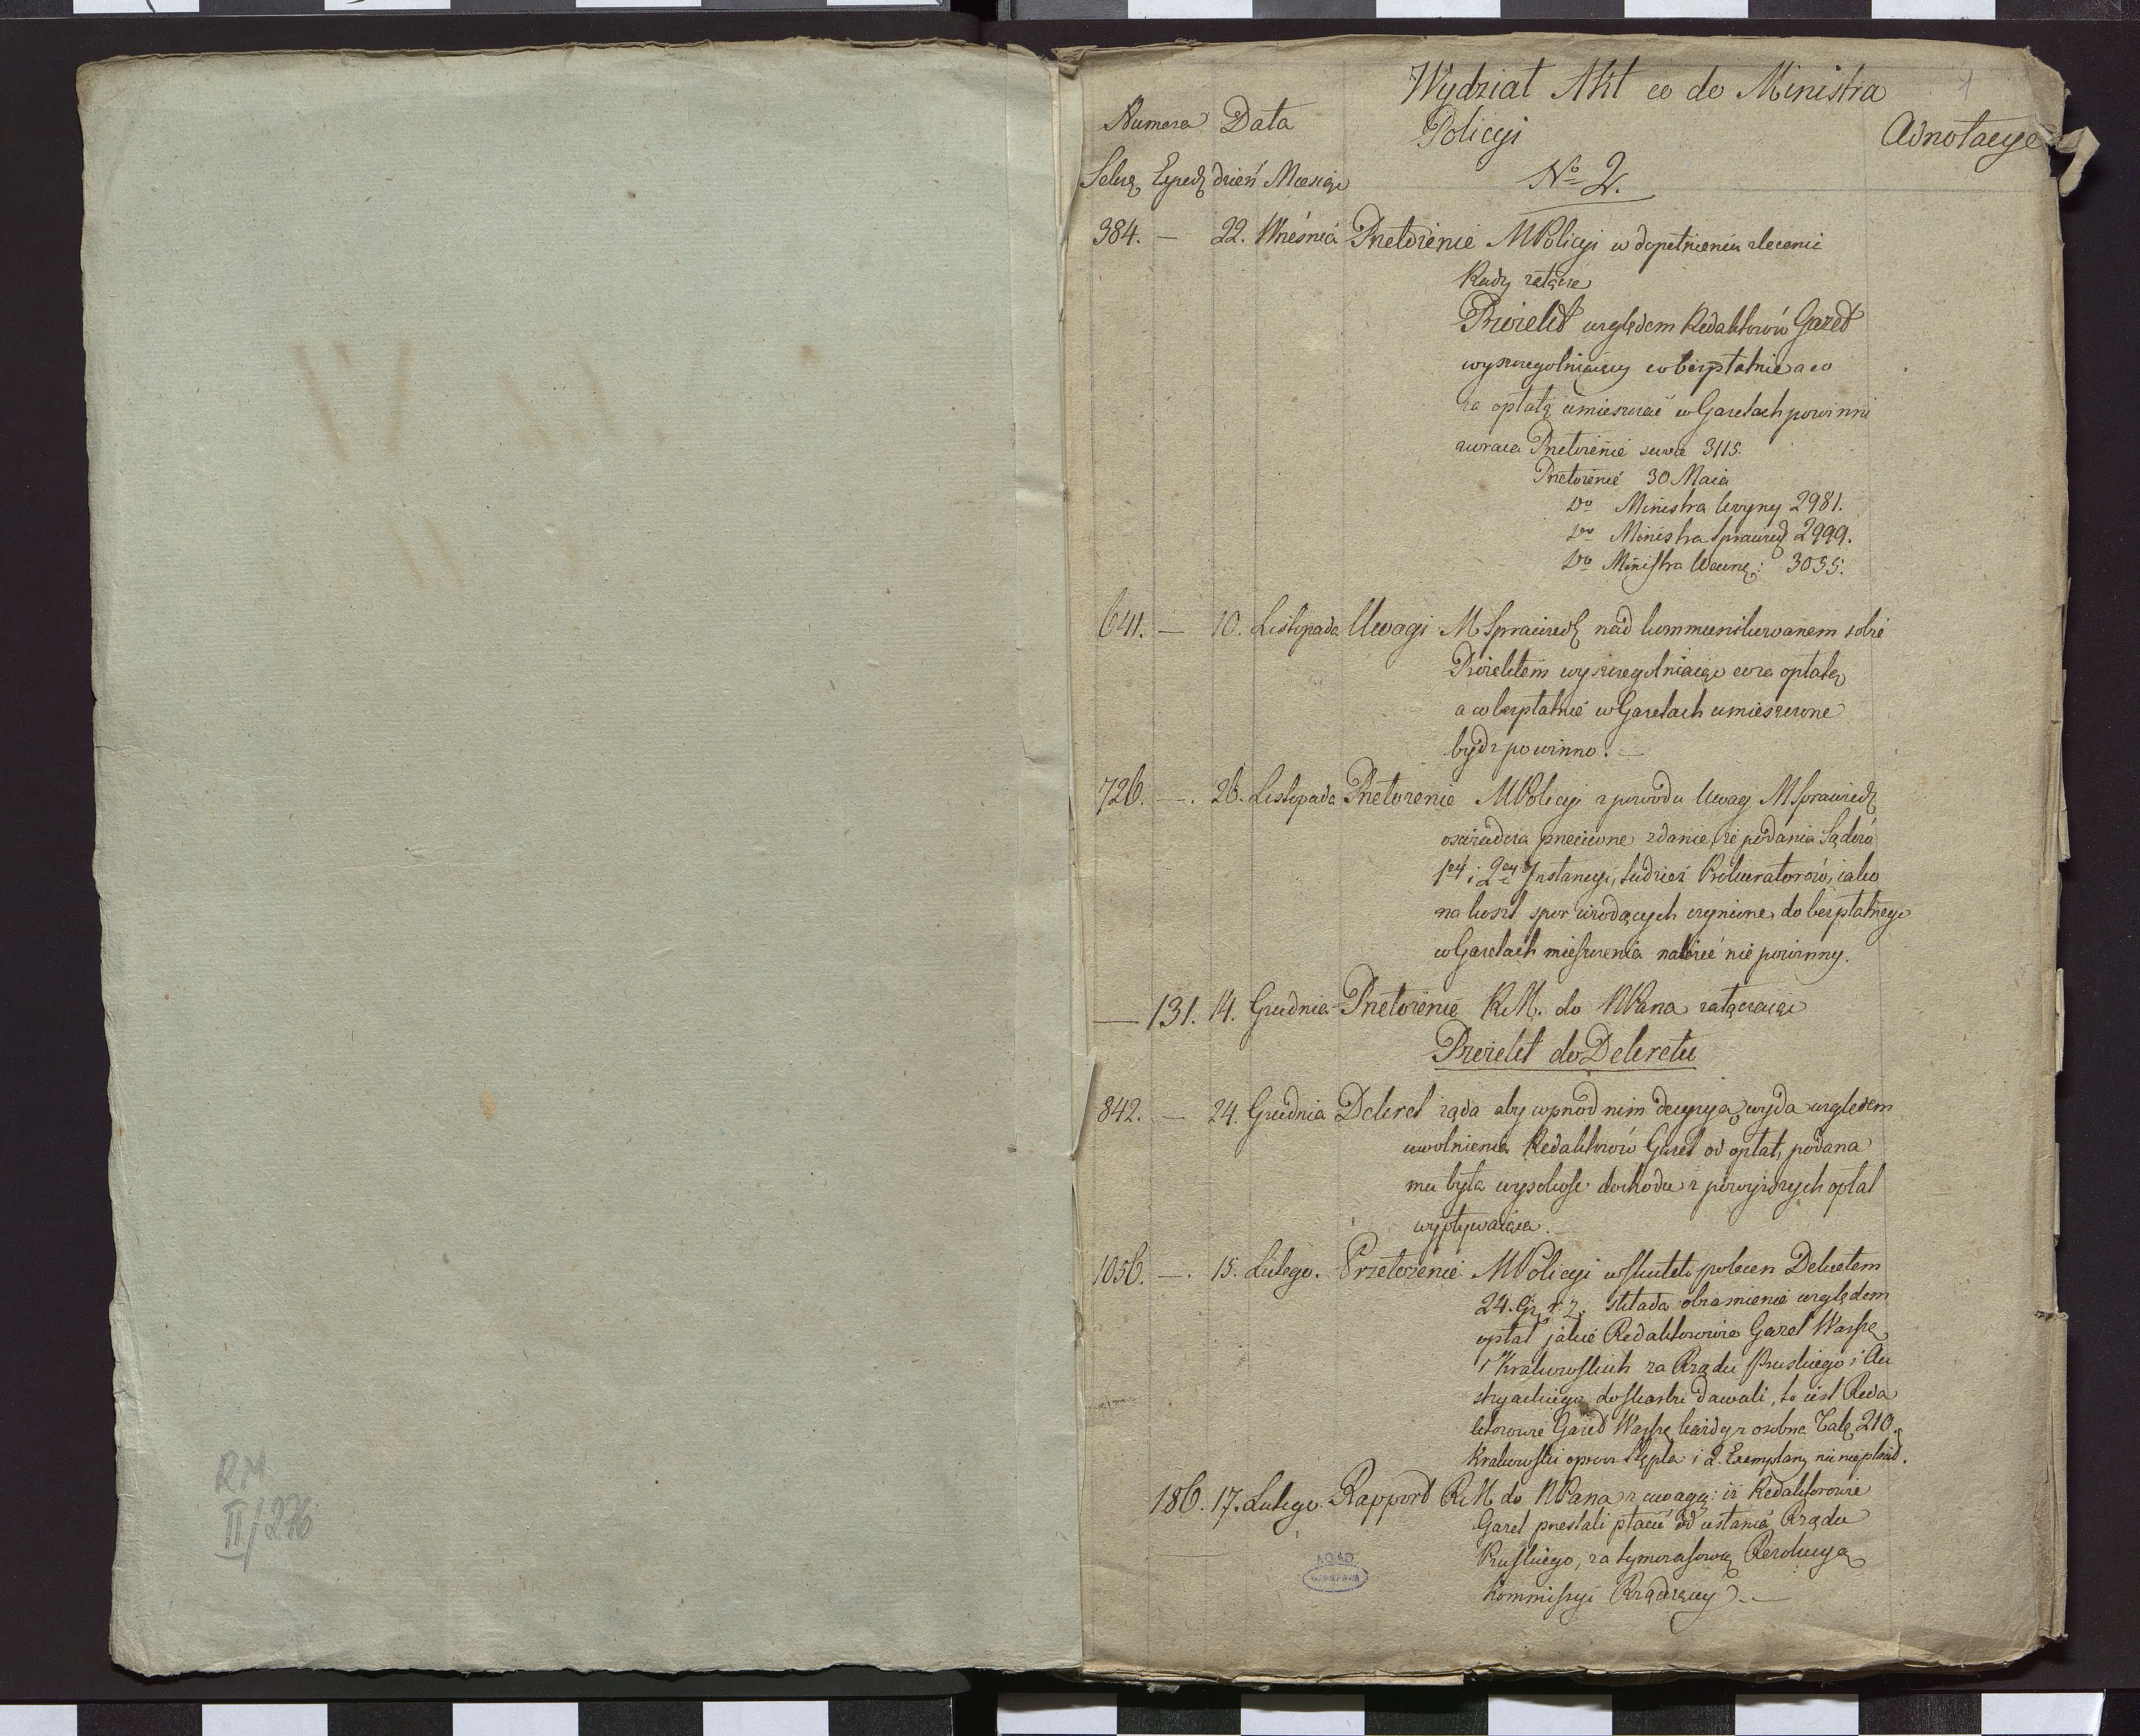 Wydział Akt co do Ministra
Policyi
Numera Data Adnotacye
dzień Miesiąc
No 2.
384. — 22. Wrześnіa Przełożenie MPolicyi w dopełnieniu zlecenia
Rady załącza
Proiekt względem Redaktorów Gazet
wyszczegolniaiący co bezpłatnie a co
za opłatą umieszczać w Gazetach powinni
zwraca Przełożenie swoie 3115.
Przełożenie 30 Maia
Do Ministra Woyny 2981.
Do Ministra Sprawied 2999.
Do Ministra Wewnę: 3055.
641. — 10. Listopada Uwagi MSprawiedl nad kommunikowanem sobie
Proiektem wyszczegolniaiąc co za opłatą
a co bezpłatnie w Gazetach umieszczone
bydz powinno. —
726. —. 26. Listopada Przełożenie MPolicyi z powodu Uwag MSprawiedl
oswiadcza przeciwne zdanie, że podania Sądów
1ey i 2ey Instancyi, tudzież Prokuratorów, iako
na koszt spor wiodących czynione do bezpłatnego
w Gazetach mieszczenia należeć nie powinny.
— 131. 14. Grudnia Przełożenie RM. do NPana załączaiące
Proiekt do Dekretu
842. — 24. Grudnia Dekret żąda aby wprzod nim decyzyą wyda względem
uwolnienia Redaktorów Gazet od opłat, podana
mu była wysokość dochodu z powyższych opłat
wypływaiąca.
1056. —. 15. Lutego. Przełożenie MPolicyi w skutek poleceń Dekretem
24. Gr. r. z. składa obiasnienie względem
opłat jakie Redaktorowie Gazet Warsz
i Krakowskich za Rządu Pruskiego i Au
stryackiego do skarbu dawali, to iest Reda
ktorowie Gazet Warsz każdy z osobna Tal 210.
Krakowski oprocz stępla i 2. Exemplarzy nic nie płacił.
186. 17. Lutego. Rapport RM do NPana z uwagą: iż Redaktorowie
Gazet przestali płacić od ustania Rządu
Pruskiego, za tymczasową Rezolucyą
Kommissyi Rządzący. —
RM
II/276
AGAD
WARSZAWA